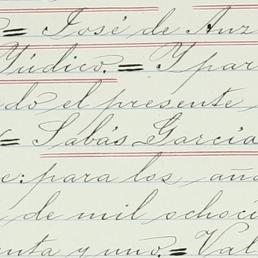 = José de Anz
Yúdico. = Y par
do el presente
= Sabás García
e: para los año
de mil ochoci
enta y uno. = Val